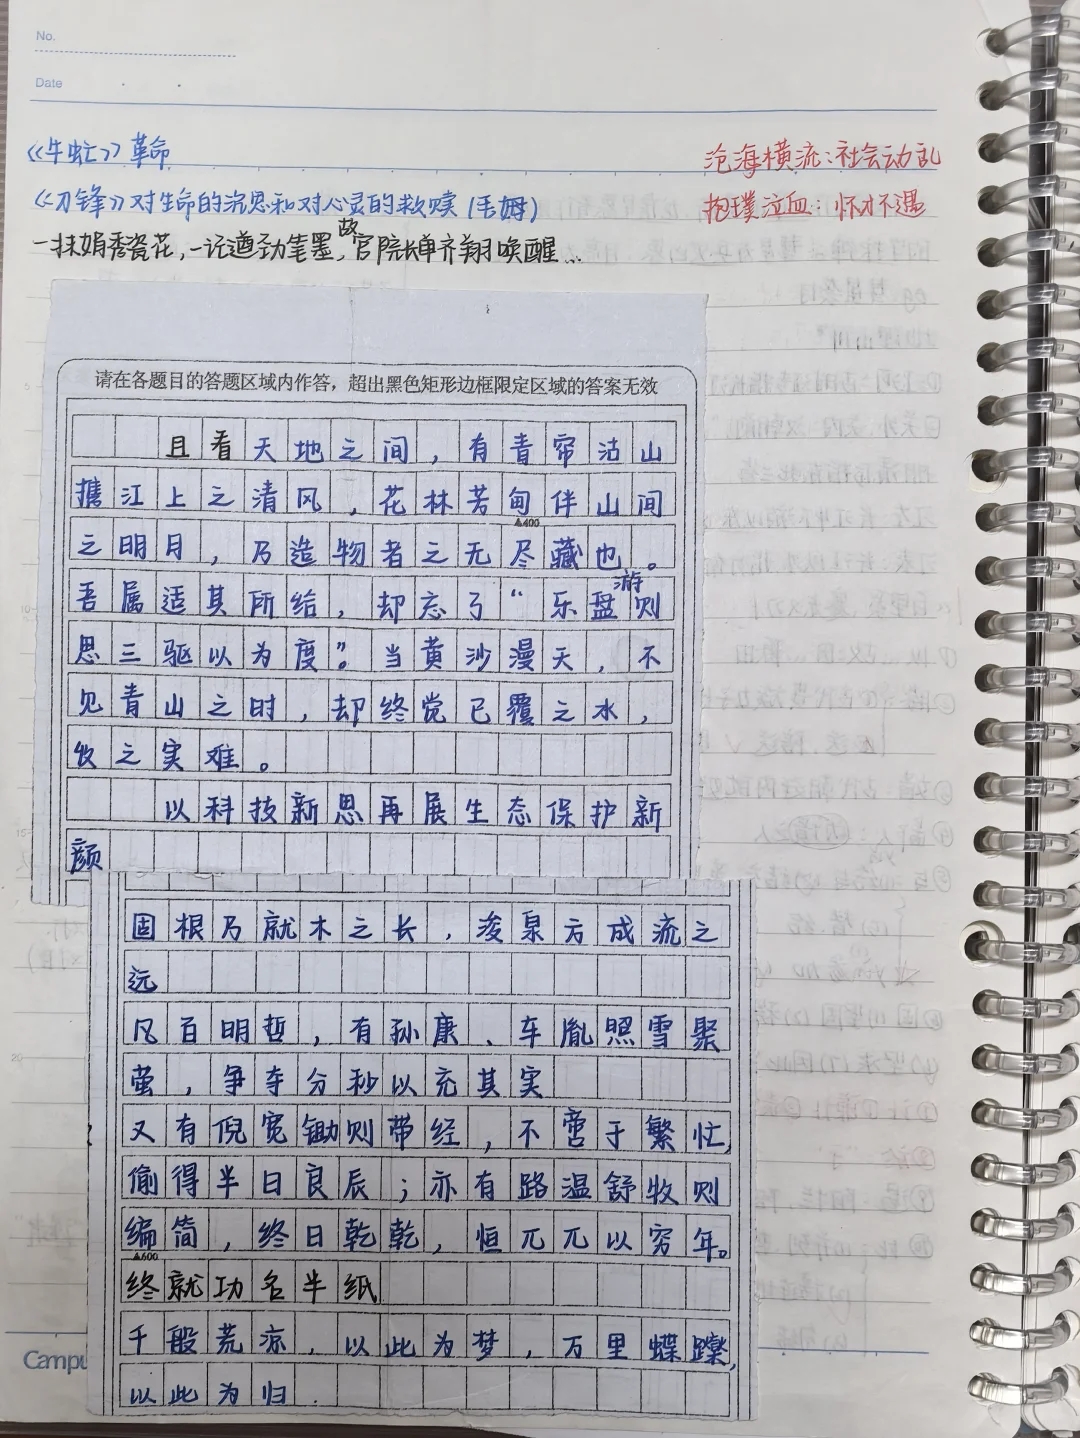 No.
Date
《牛虻》革命
沧海横流:社会动乱
《刀锋》对生命的沉思和对心灵的救赎(毛姆)
抱璞泣血:怀才不遇
一抹娟秀瓷花,一记遒劲笔墨,故宫院长单齐翔唤醒...
请在各题目的答题区域内作答,超出黑色矩形边框限定区域的答案无效
且看天地之间,有青帘沽山
携江上之清风,花林芳甸伴山间
▲400
之明月,乃造物者之无尽藏也。
吾属适其所给,却忘了“乐盘游则
思三驱以为度”。当黄沙漫天,不
见青山之时,却终觉已覆之水,
收之实难。
以科技新思再展生态保护新
颜
固根乃就木之长,浚泉方成流之
远
凡百明哲,有孙康、车胤照雪聚
萤,争夺分秒以充其实
又有倪宽锄则带经,不啻于繁忙,
偷得半日良辰;亦有路温舒牧则
编简,终日乾乾,恒兀兀以穷年。
▲600
终就功名半纸
千般荒凉,以此为梦,万里蹀躞,
以此为归.
Campu